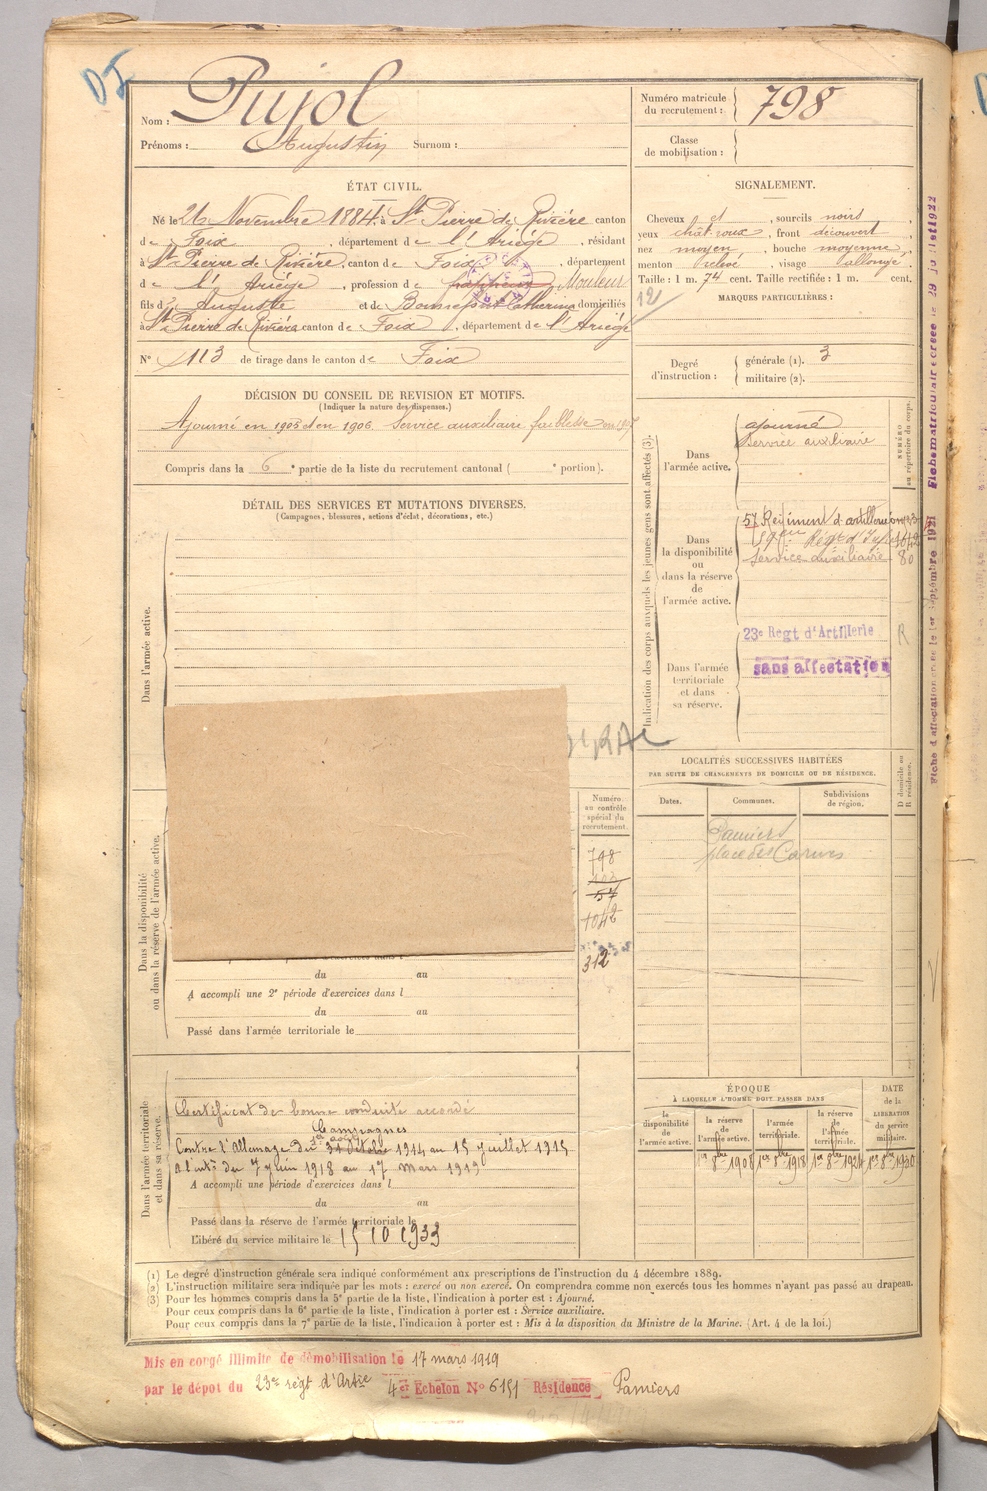 Pujol
Nom :
Prénoms : Augustin Surnom :
Numéro matricule
du recrutement : 798
Classe
de mobilisation :
ÉTAT CIVIL.
Né le 26 Novembre 1884, à St Pierre de Rivière canton
de Foix, département de l'Ariège, résidant
à St Pierre de Rivière, canton de Foix, département
de l'Ariège, profession de Mouleur
fils d' Auguste et de Bonnefont Catherine domiciliés
à St Pierre de Rivière canton de Foix, département de l'Ariège
N° 113 de tirage dans le canton de Foix
SIGNALEMENT.
Cheveux et , sourcils noirs
yeux chât. roux, front découvert
nez moyen, bouche moyenne
menton relevé, visage allongé
Taille : 1 m. 74 cent. Taille rectifiée : 1 m. cent.
12
MARQUES PARTICULIÈRES :
Degré
d'instruction :
générale (1). 3
militaire (2).
DÉCISION DU CONSEIL DE REVISION ET MOTIFS.
(Indiquer la nature des dispenses.)
Ajourné en 1905 et en 1906. Service auxiliaire faiblesse en 1907
Compris dans la 6e partie de la liste du recrutement cantonal ( e portion).
DÉTAIL DES SERVICES ET MUTATIONS DIVERSES.
(Campagnes, blessures, actions d'éclat, décorations, etc.)
Dans l'armée active.
Indication des corps auxquels les jeunes gens sont affectés (3).
NUMÉRO
au répertoire du corps.
Dans
l'armée active.
ajourné
Service auxiliaire
Dans
la disponibilité
ou
dans la réserve
de
l'armée active.
57 Régiment d'artillerie
59eme Régt d'Inf
Service auxiliaire 80
23e Régt d'Artillerie
R
Dans l'armée
territoriale
et dans
sa réserve.
sans affectation
Fiche matriculaire créée le 29 juillet 1922
Fiche d'affectation créée le 1er septembre 1921
LOCALITÉS SUCCESSIVES HABITÉES
PAR SUITE DE CHANGEMENTS DE DOMICILE OU DE RÉSIDENCE.
D domicile ou
R résidence.
Dates. Communes. Subdivisions
de région.
Pamiers
place des Carmes
Dans la disponibilité
ou dans la réserve de l'armée active.
Numéro
au contrôle
spécial du
recrutement.
798
57
1042
312
du au
A accompli une 2e période d'exercices dans l
du au
Passé dans l'armée territoriale le
Dans l'armée territoriale
et dans sa réserve.
Certificat de bonne conduite accordé
Campagnes
Contre l'Allemagne du 31 Octobre 1914 au 15 juillet 1915
A l'intr du 7 juin 1918 au 17 Mars 1919
A accompli une période d'exercices dans l
du au
Passé dans la réserve de l'armée territoriale le
Libéré du service militaire le 15 10 1933
ÉPOQUE
À LAQUELLE L'HOMME DOIT PASSER DANS
DATE
de la
LIBÉRATION
du service
militaire.
la
disponibilité
de
l'armée active.
la réserve
de
l'armée active.
l'armée
territoriale.
la réserve
de
l'armée
territoriale.
1er 8bre 1908 1er 8bre 1918 1er 8bre 1924 1er 8bre 1930
(1) Le degré d'instruction générale sera indiqué conformément aux prescriptions de l'instruction du 4 décembre 1889.
(2) L'instruction militaire sera indiquée par les mots : exercé ou non exercé. On comprendra comme non exercés tous les hommes n'ayant pas passé au drapeau.
(3) Pour les hommes compris dans la 5e partie de la liste, l'indication à porter est : Ajourné.
Pour ceux compris dans la 6e partie de la liste, l'indication à porter est : Service auxiliaire.
Pour ceux compris dans la 7e partie de la liste, l'indication à porter est : Mis à la disposition du Ministre de la Marine. (Art. 4 de la loi.)
Mis en congé illimité de démobilisation le 17 mars 1919
par le dépôt du 23e régt d'Artie 4er Echelon N° 6151 Résidence Pamiers